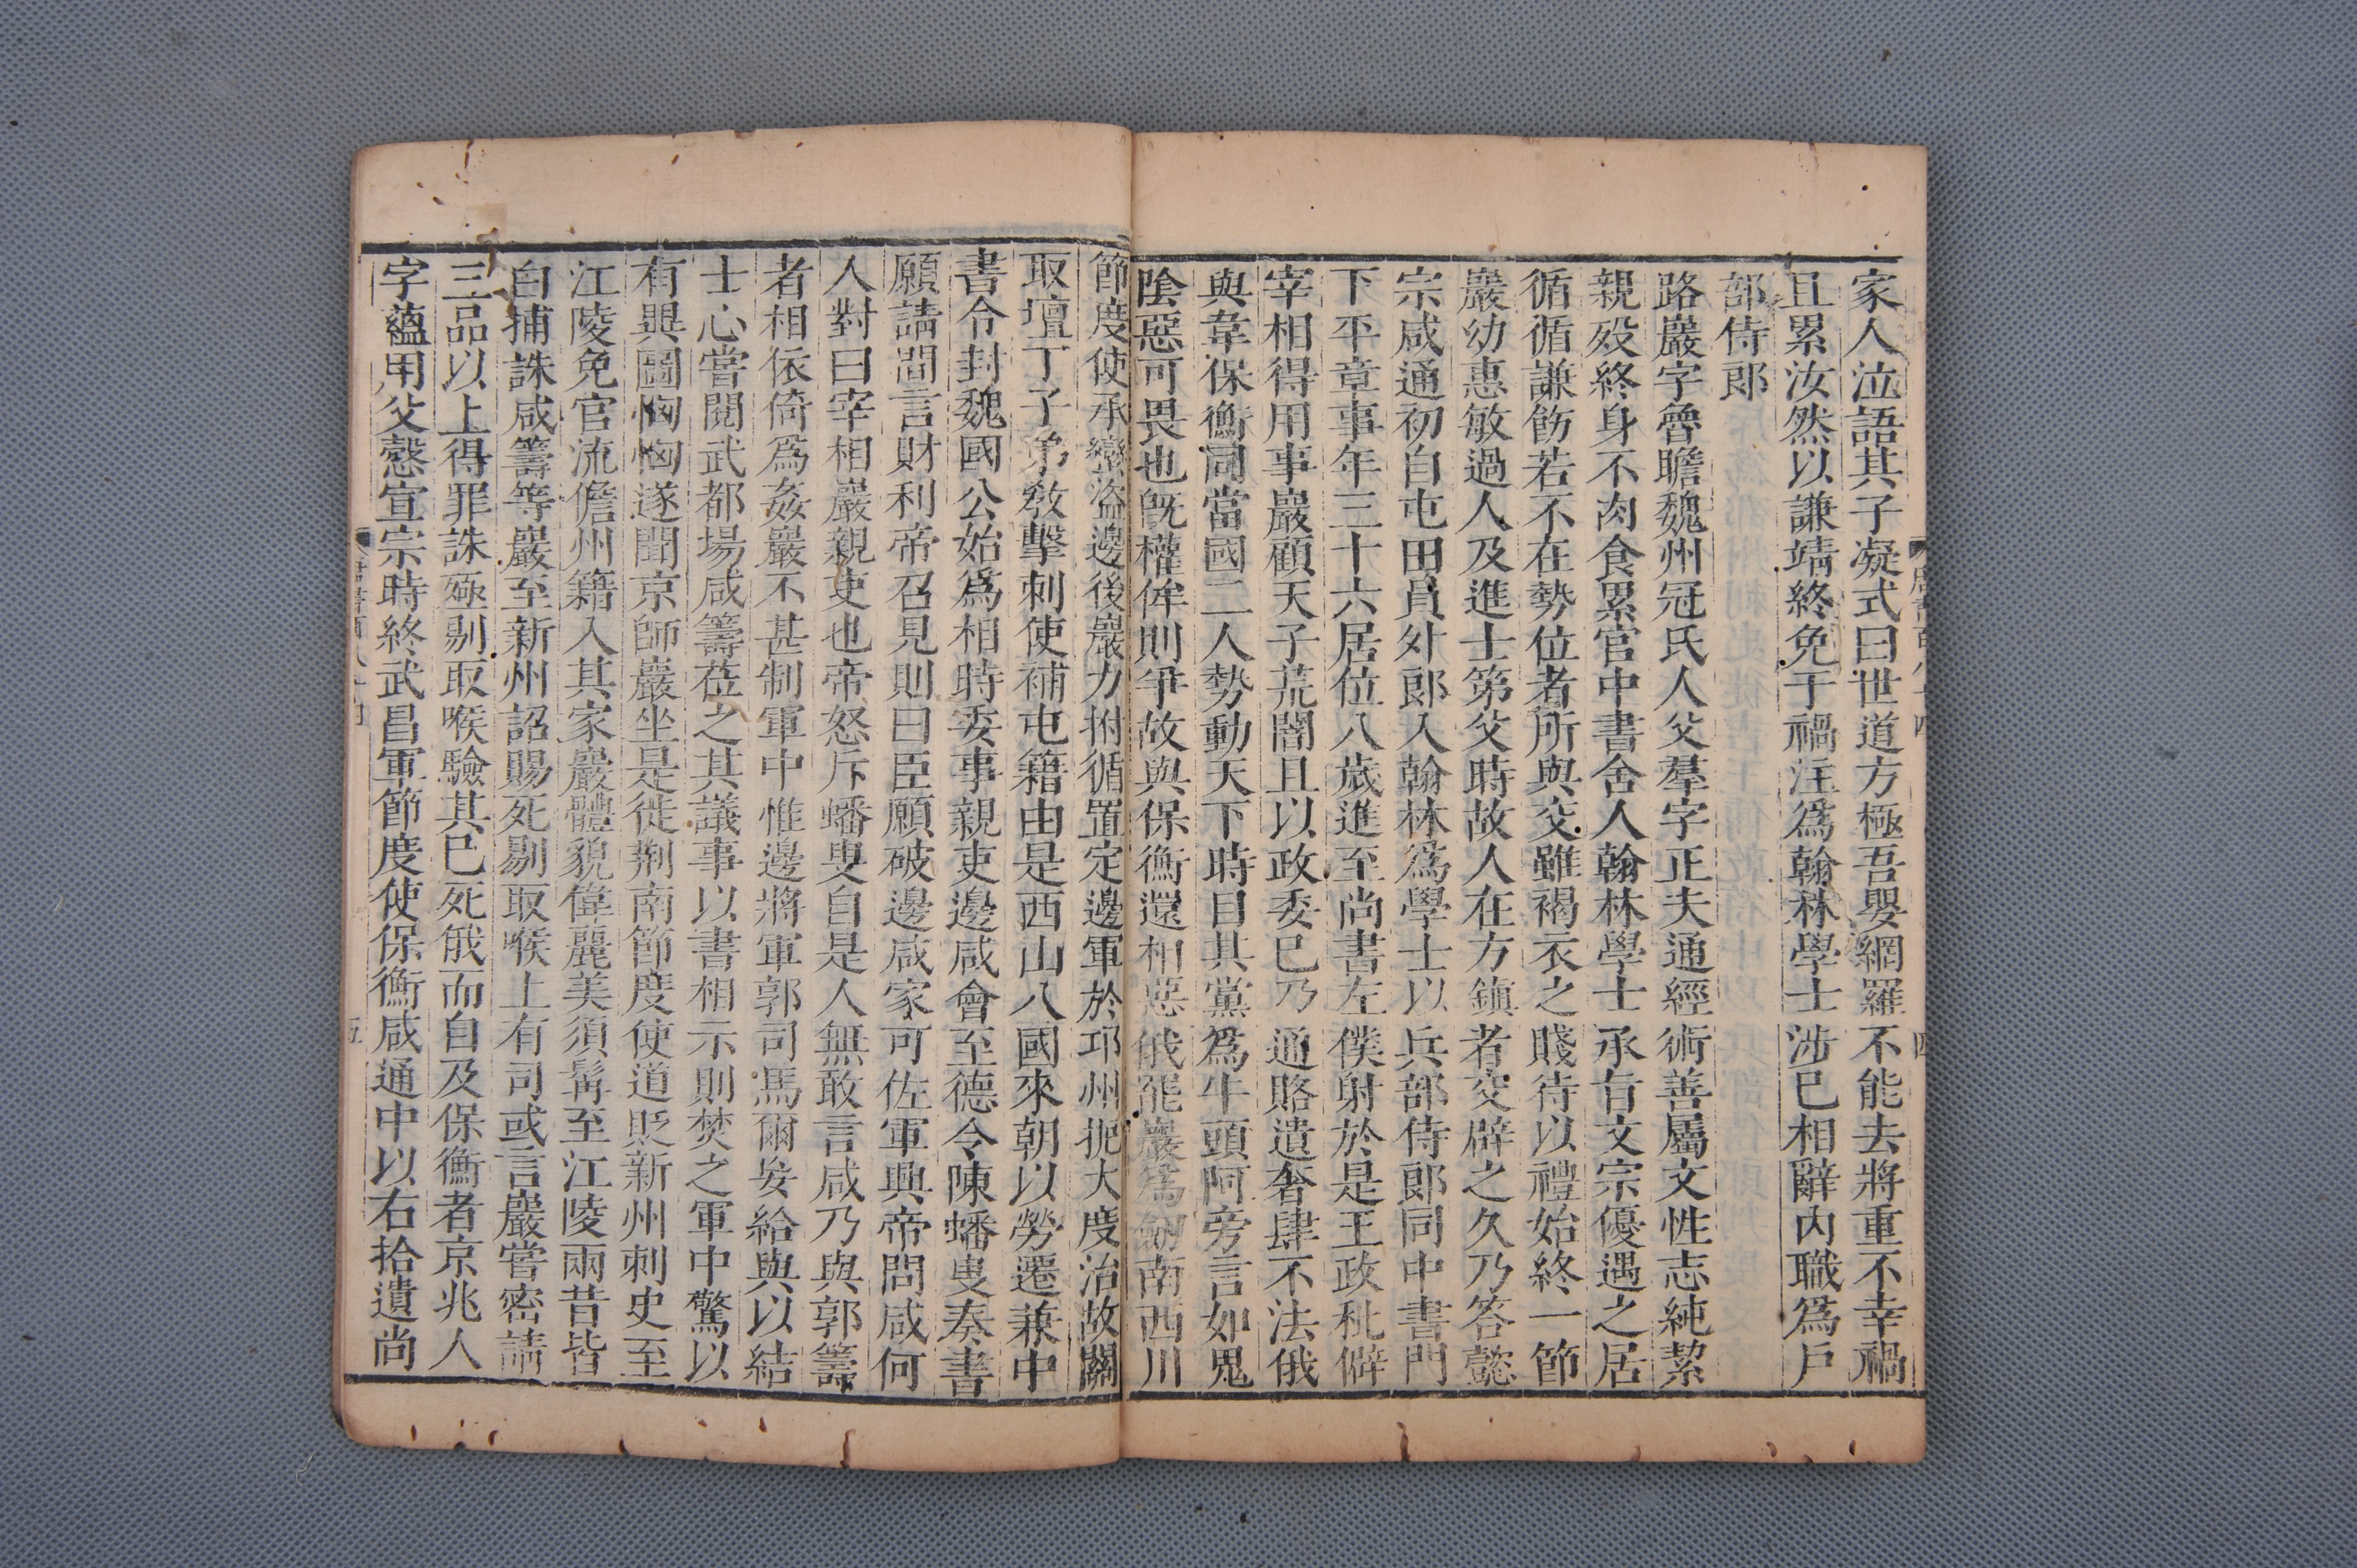 家人泣語其子凝式曰世道方極吾嬰網羅不能去將重不幸禍
且累汝然以謙靖終免于禍注爲翰林學士涉巳相辭內職爲戶
部侍郎
路巖字魯瞻魏州冠氏人父羣字正夫通經術善屬文性志純絜
親歿終身不肉食累官中書舍人翰林學士承旨文宗優遇之居
循循謙飭若不在勢位者所與交雖褐衣之賤待以禮始終一節
巖幼惠敏過人及進士第父時故人在方鎮者交辟之久乃答懿
宗咸通初自屯田員外郎入翰林爲學士以兵部侍郎同中書門
下平章事年三十六居位八歲進至尚書左僕射於是王政秕僻
宰相得用事巖顧天子荒闇且以政委巳乃通賂遺奢肆不法俄
與韋保衡同當國二人勢動天下時目其黨爲牛頭阿旁言如鬼
陰惡可畏也旣權侔則爭故與保衡還相惡俄罷巖爲劒南西川
節度使承蠻盜邊後巖力拊循置定邊軍於邛州扼大度治故關
取壇丁子弟敎擊刺使補屯籍由是西山八國來朝以勞遷兼中
書令封魏國公始爲相時委事親吏邊咸會至德令陳蟠叟奏書
願請間言財利帝召見則曰臣願破邊咸家可佐軍興帝問咸何
人對曰宰相巖親吏也帝怒斥蟠叟自是人無敢言咸乃與郭籌
者相依倚爲姦巖不甚制軍中惟邊將軍郭司馬爾妄給與以結
士心嘗閱武都場咸籌莅之其議事以書相示則焚之軍中驚以
有異圖恟恟遂聞京師巖坐是徙荆南節度使道貶新州刺史至
江陵免官流儋州籍入其家巖體貌偉麗美須髯至江陵兩昔皆
白捕誅咸籌等巖至新州詔賜死剔取喉上有司或言巖嘗密請
三品以上得罪誅殛剔取喉驗其巳死俄而自及保衡者京兆人
字蘊用父慤宣宗時終武昌軍節度使保衡咸通中以右拾遺尚